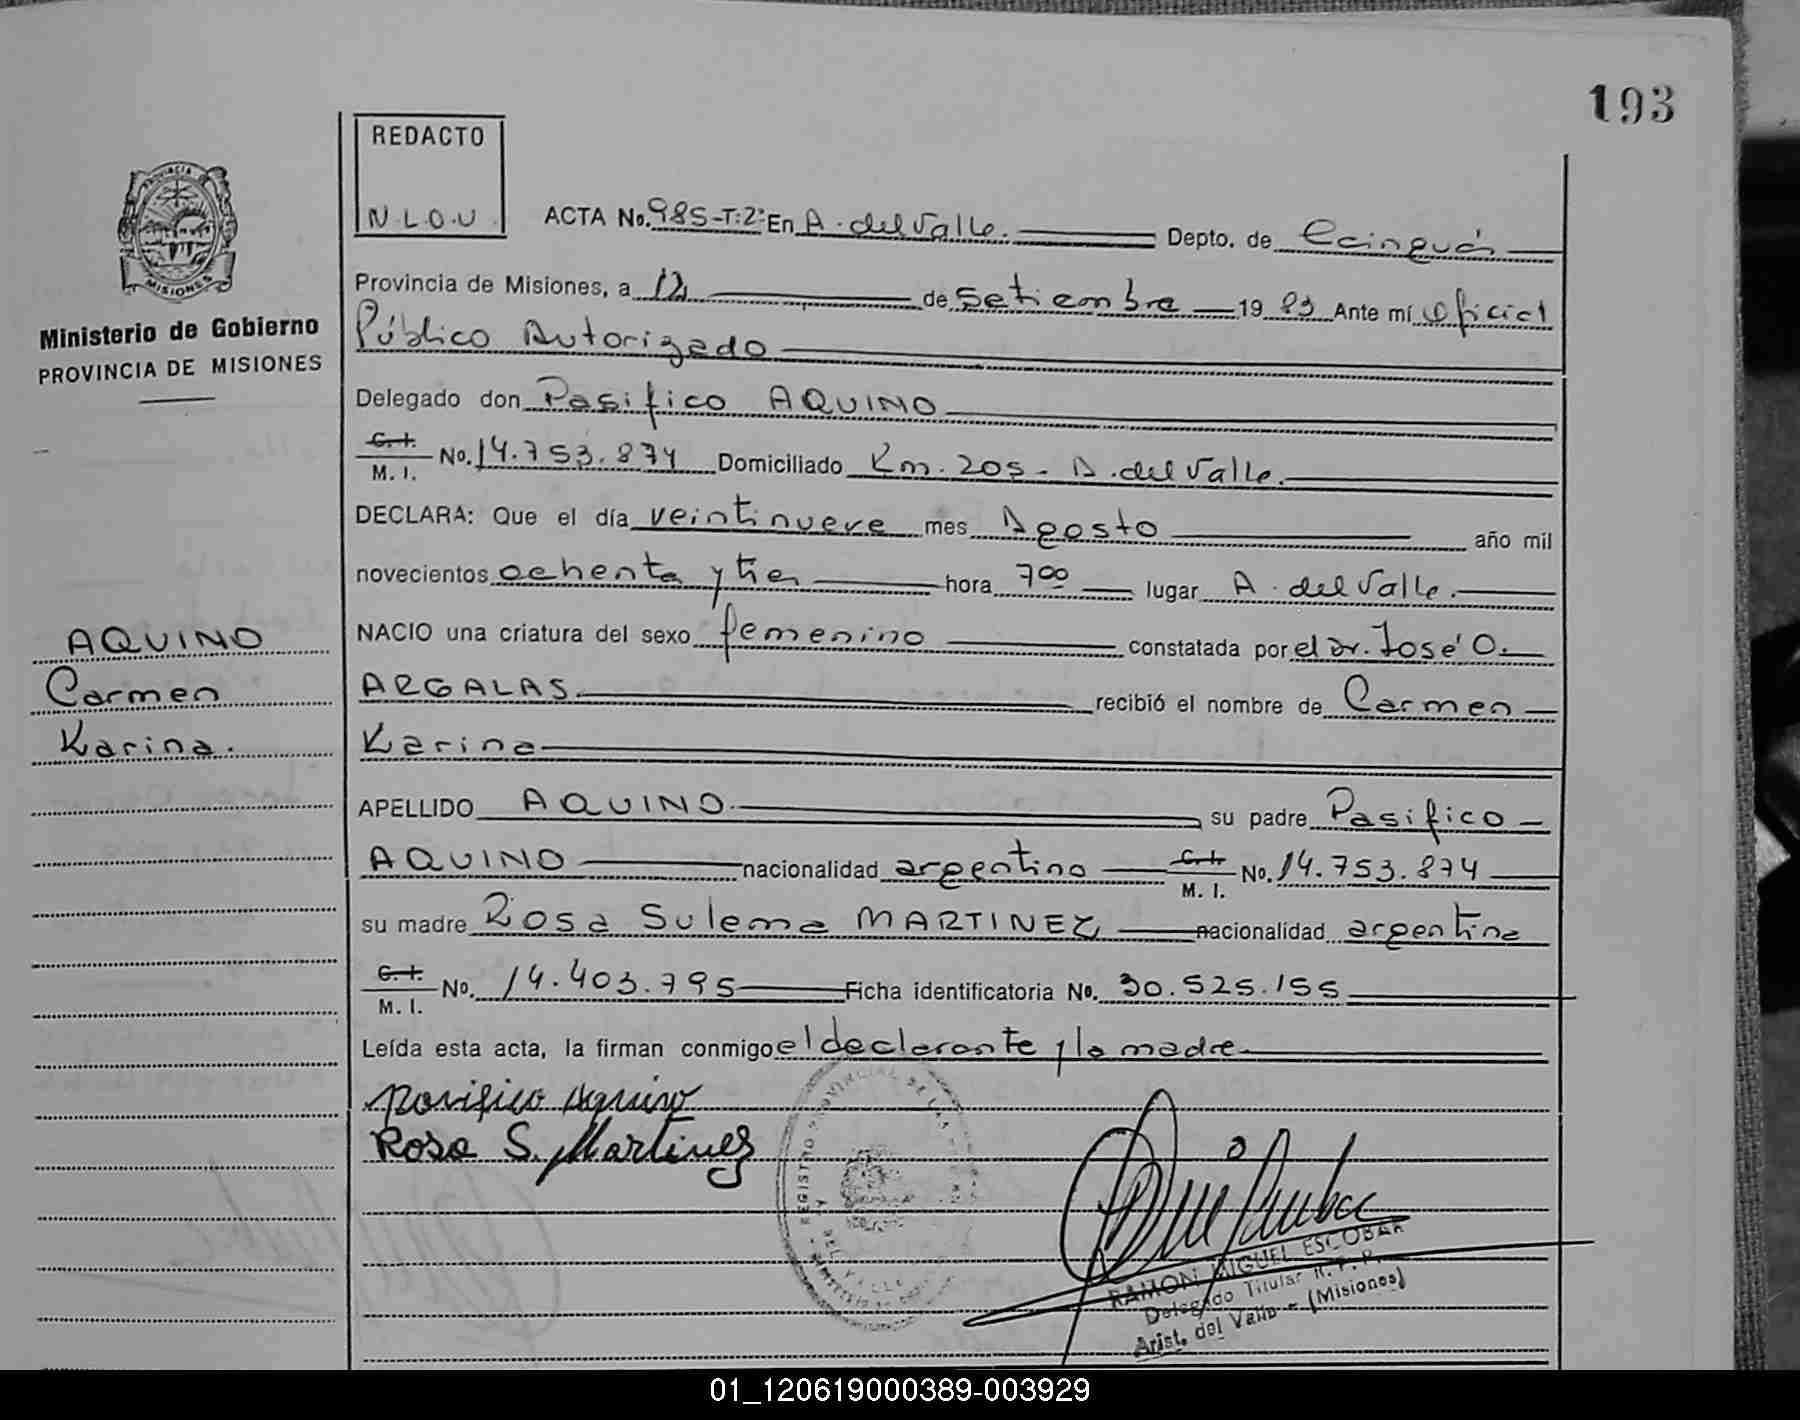 193
REDACTO
N.L.O.U.
ACTA No. 985-T:2º En A. del Valle. Depto. de Cainguás
Provincia de Misiones, a 12 de Setiembre 1983 Ante mí Oficial
Público Autorizado
Delegado don Pasifico AQUINO
C.I.
M.I. No. 14.753.874 Domiciliado Km. 205 - A. del Valle.
DECLARA: Que el día veintinueve mes Agosto año mil
novecientos ochenta y tres hora 7⁰⁰ lugar A. del Valle.
NACIO una criatura del sexo femenino constatada por el Dr. José O.
ARGALAS. recibió el nombre de Carmen
Karina
APELLIDO AQUINO su padre Pasifico
AQUINO nacionalidad argentino C.I.
M.I. No. 14.753.874
su madre Rosa Sulema MARTINEZ nacionalidad argentina
C.I.
M.I. No. 14.403.795 Ficha identificatoria No. 30.525.155
Leída esta acta, la firman conmigo el declarante y la madre
Aquino
Rosa S. Martinez
REGISTRO PROVINCIAL DE LAS
DEL VALLE
RAMON MIGUEL ESCOBAR
Delegado Titular R. P. P.
Arist. del Valle - (Misiones)
PROVINCIA DE
MISIONES
Ministerio de Gobierno
PROVINCIA DE MISIONES
AQUINO
Carmen
Karina.
01_120619000389-003929